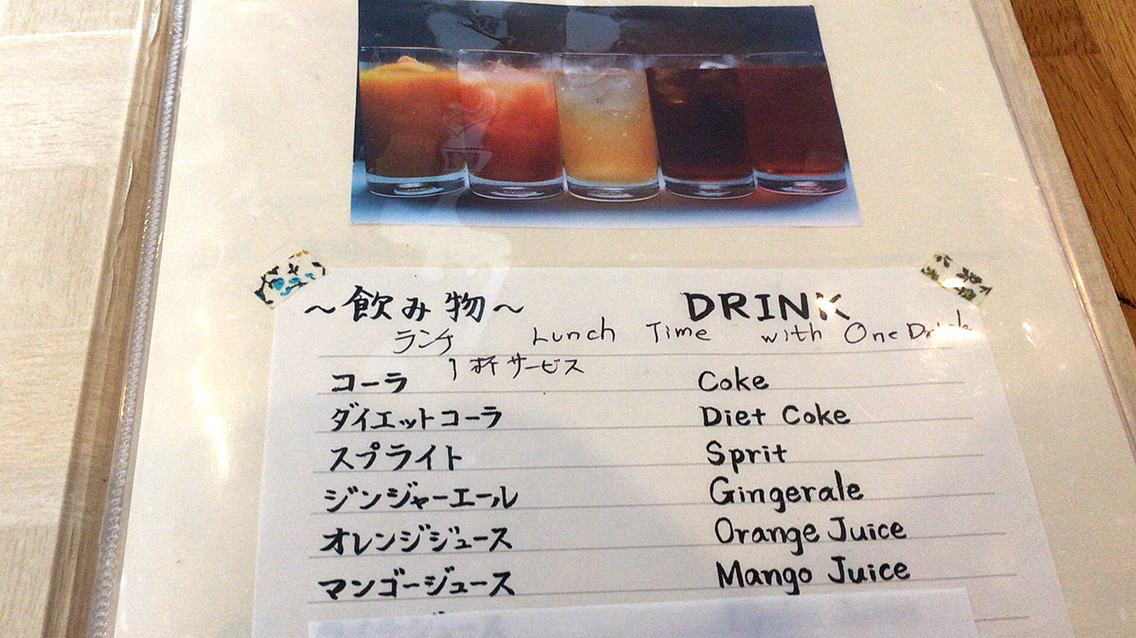 ～飲み物～ DRINK
ランチ Lunch Time with One Drink
1杯サービス
コーラ Coke
ダイエットコーラ Diet Coke
スプライト Sprit
ジンジャーエール Gingerale
オレンジジュース Orange Juice
マンゴージュース Mango Juice